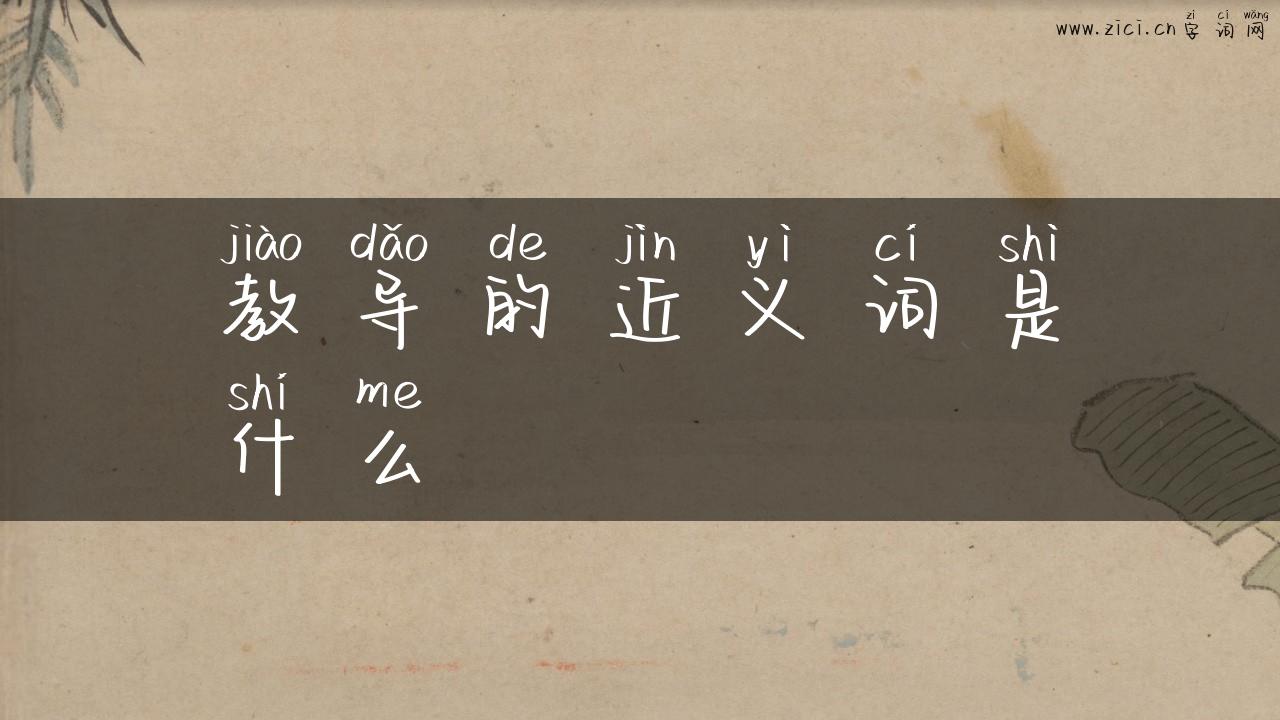 zì cí wǎng
www.zici.cn 字词网
jiào dǎo de jìn yì cí shì
教导的近义词是
shí me
什么